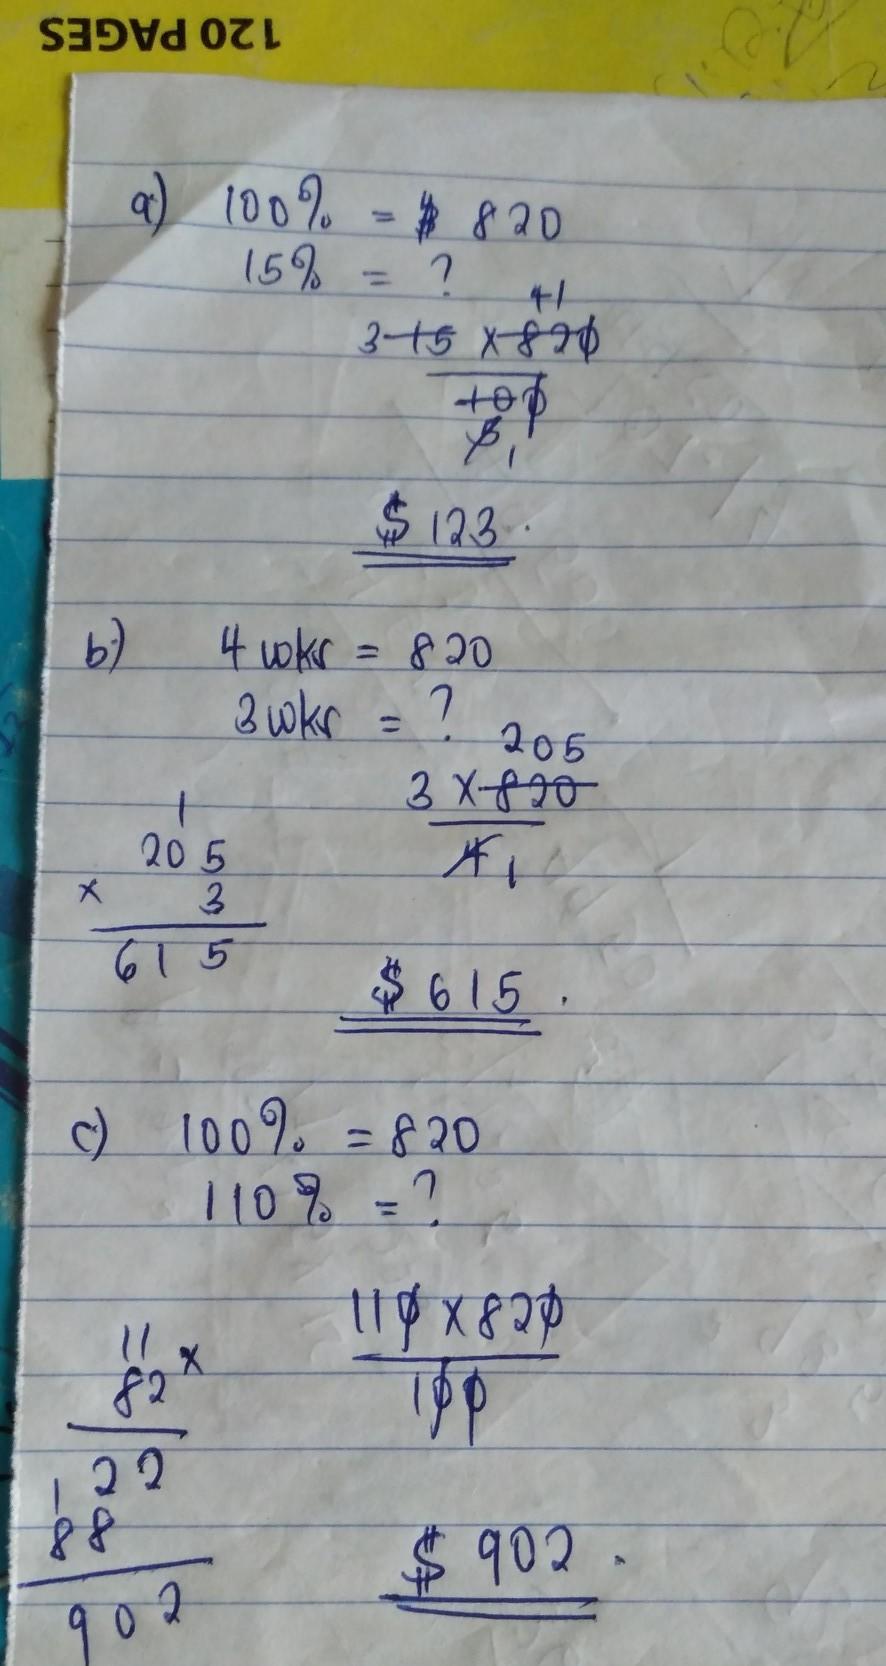 120 PAGES
a) 100% = $ 820
15% = ?
41
3 15 x 820
100
5 1
$ 123.
b) 4 wks = 820
3 wks = ?
205
3 x 820
4 1
1
205
x 3
615
$ 615.
c) 100% = 820
110% = ?
110 x 820
100
11 x
82
22
1
88
902
$ 902.